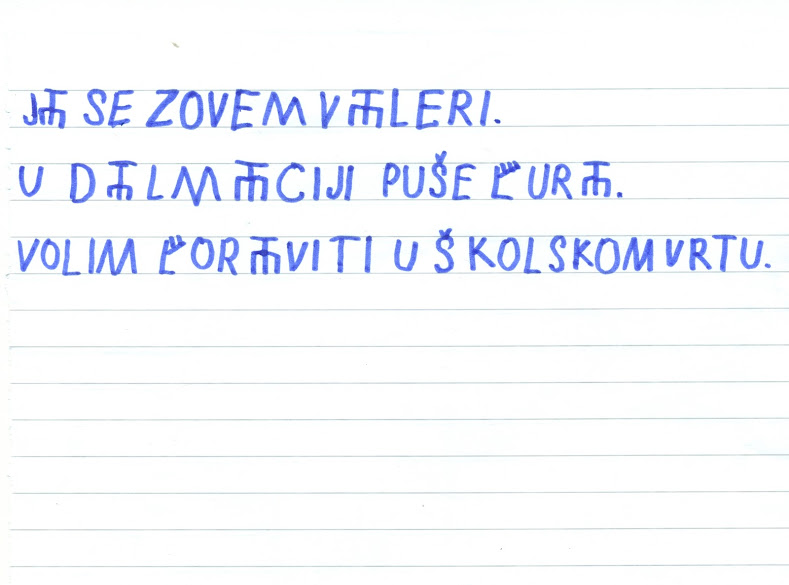 JⰀ SE ZOVEM VⰀLERI.
U DⰀLMⰀCIJI PUŠE ⰁURⰀ.
VOLIM ⰁORⰀVITI U ŠKOLSKOM VRTU.